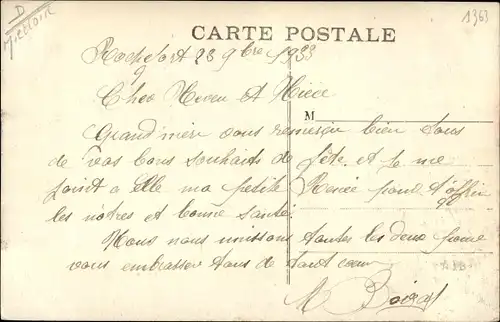 D
1363
CARTE POSTALE
Rochefort 23 9bre 1933
Cher Neveu et Nièce
M
Grand'mère vous remerçie bien tous
de vos bons souhaits de fête et je me
joint a Elle ma petite Renée pour t'offrir
les nôtres et bonne santé.
Nous nous unissons toutes les deux pour
vous embrasser tous de tout coeur